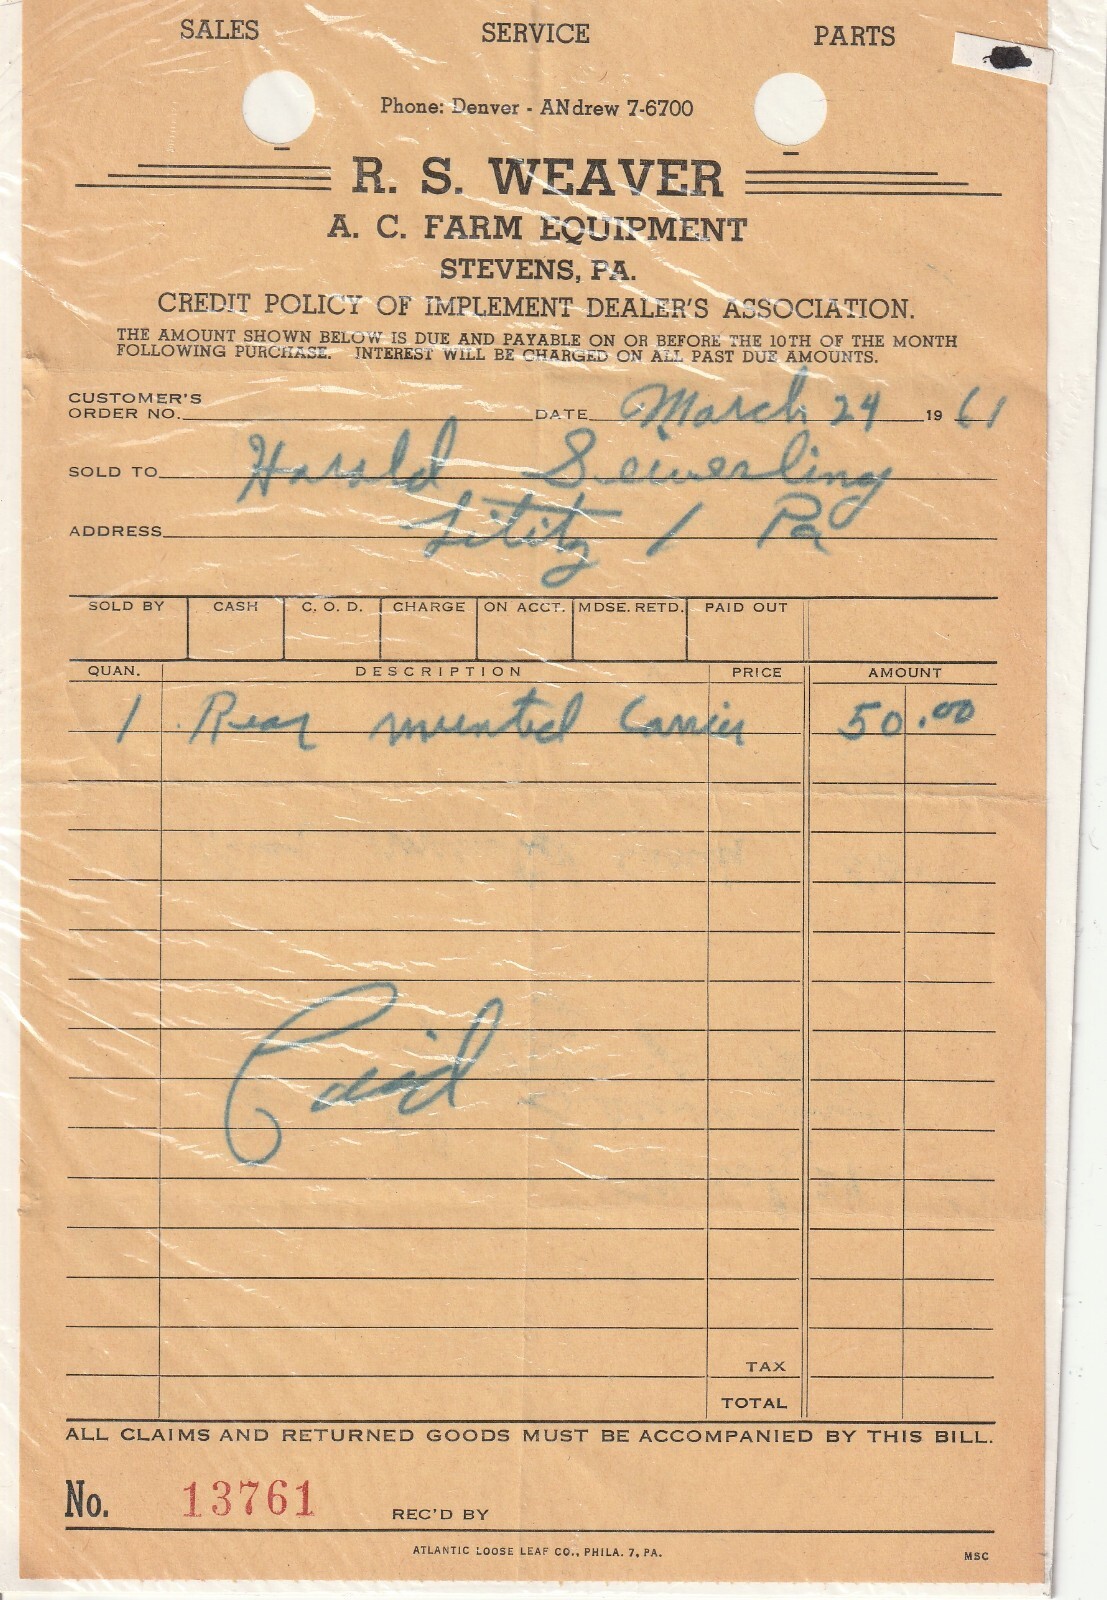 SALES SERVICE PARTS
Phone: Denver - ANdrew 7-6700
R. S. WEAVER
A. C. FARM EQUIPMENT
STEVENS, PA.
CREDIT POLICY OF IMPLEMENT DEALER'S ASSOCIATION.
THE AMOUNT SHOWN BELOW IS DUE AND PAYABLE ON OR BEFORE THE 10TH OF THE MONTH
FOLLOWING PURCHASE. INTEREST WILL BE CHARGED ON ALL PAST DUE AMOUNTS.
CUSTOMER'S
ORDER NO. DATE March 24 19 61
SOLD TO Harold
ADDRESS Lititz / Pa
SOLD BY CASH C. O. D. CHARGE ON ACCT. MDSE. RETD. PAID OUT
QUAN. DESCRIPTION PRICE AMOUNT
1 Rear mounted Carrier 50.00
Paid
TAX
TOTAL
ALL CLAIMS AND RETURNED GOODS MUST BE ACCOMPANIED BY THIS BILL.
No. 13761 REC'D BY
ATLANTIC LOOSE LEAF CO., PHILA. 7, PA. MSC